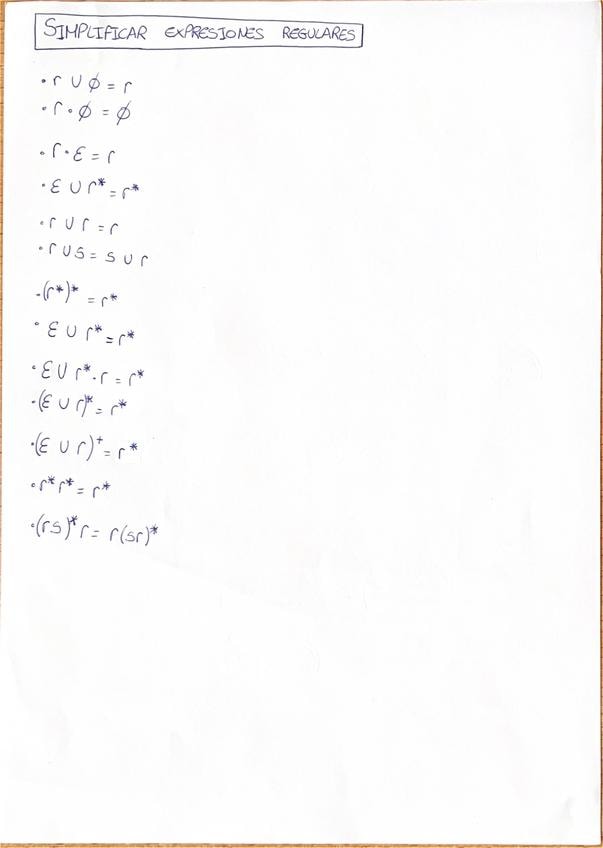 SIMPLIFICAR EXPRESIONES REGULARES
• r ∪ ∅ = r
• r • ∅ = ∅
• r • ε = r
• ε ∪ r* = r*
• r ∪ r = r
• r ∪ s = s ∪ r
• (r*)* = r*
• ε ∪ r* = r*
• ε ∪ r* • r = r*
• (ε ∪ r)* = r*
• (ε ∪ r)⁺ = r*
• r* r* = r*
• (rs)* r = r(sr)*